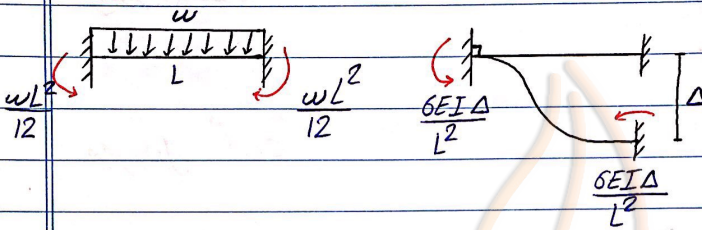 w
L
wL²/12
wL²/12
6EIΔ/L²
Δ
6EIΔ/L²